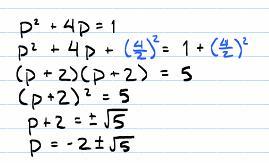 p² + 4p = 1
p² + 4p + (4/2)² = 1 + (4/2)²
(p + 2)(p + 2) = 5
(p + 2)² = 5
p + 2 = ±√5
p = -2 ± √5